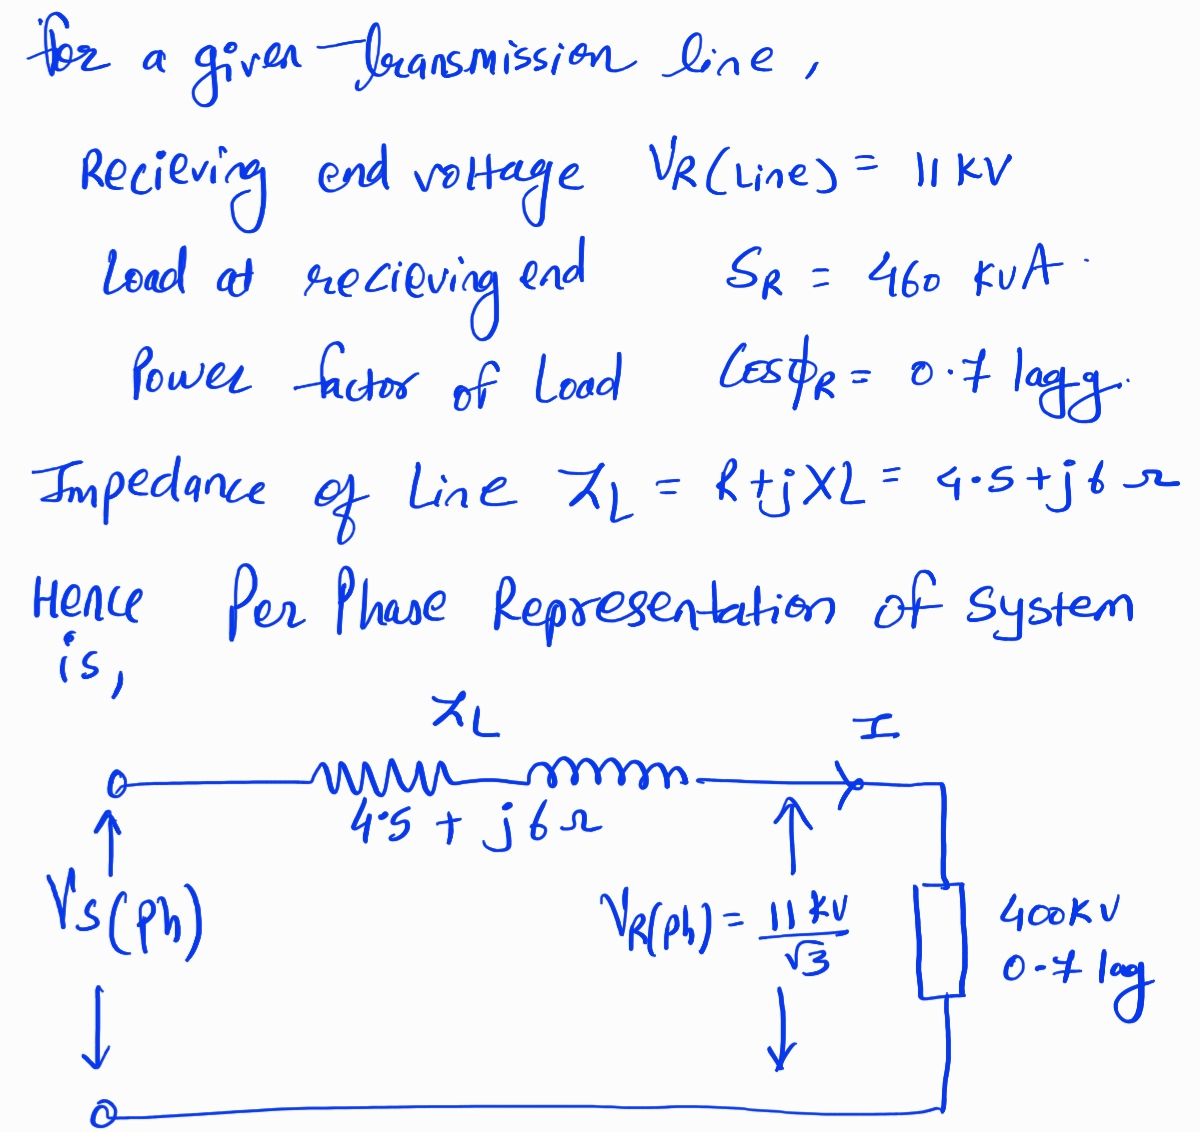 for a given transmission line,
Recieving end voltage VR(Line) = 11 KV
Load at recieving end SR = 460 KVA.
Power factor of Load CosϕR = 0.7 lagg.
Impedance of Line ZL = R+jXL = 4.5+j6 Ω
Hence Per Phase Representation of System
is,
ZL
I
4.5 + j6 Ω
VS(Ph)
VR(Ph) = 11 KV / √3
400KV
0.7 lag